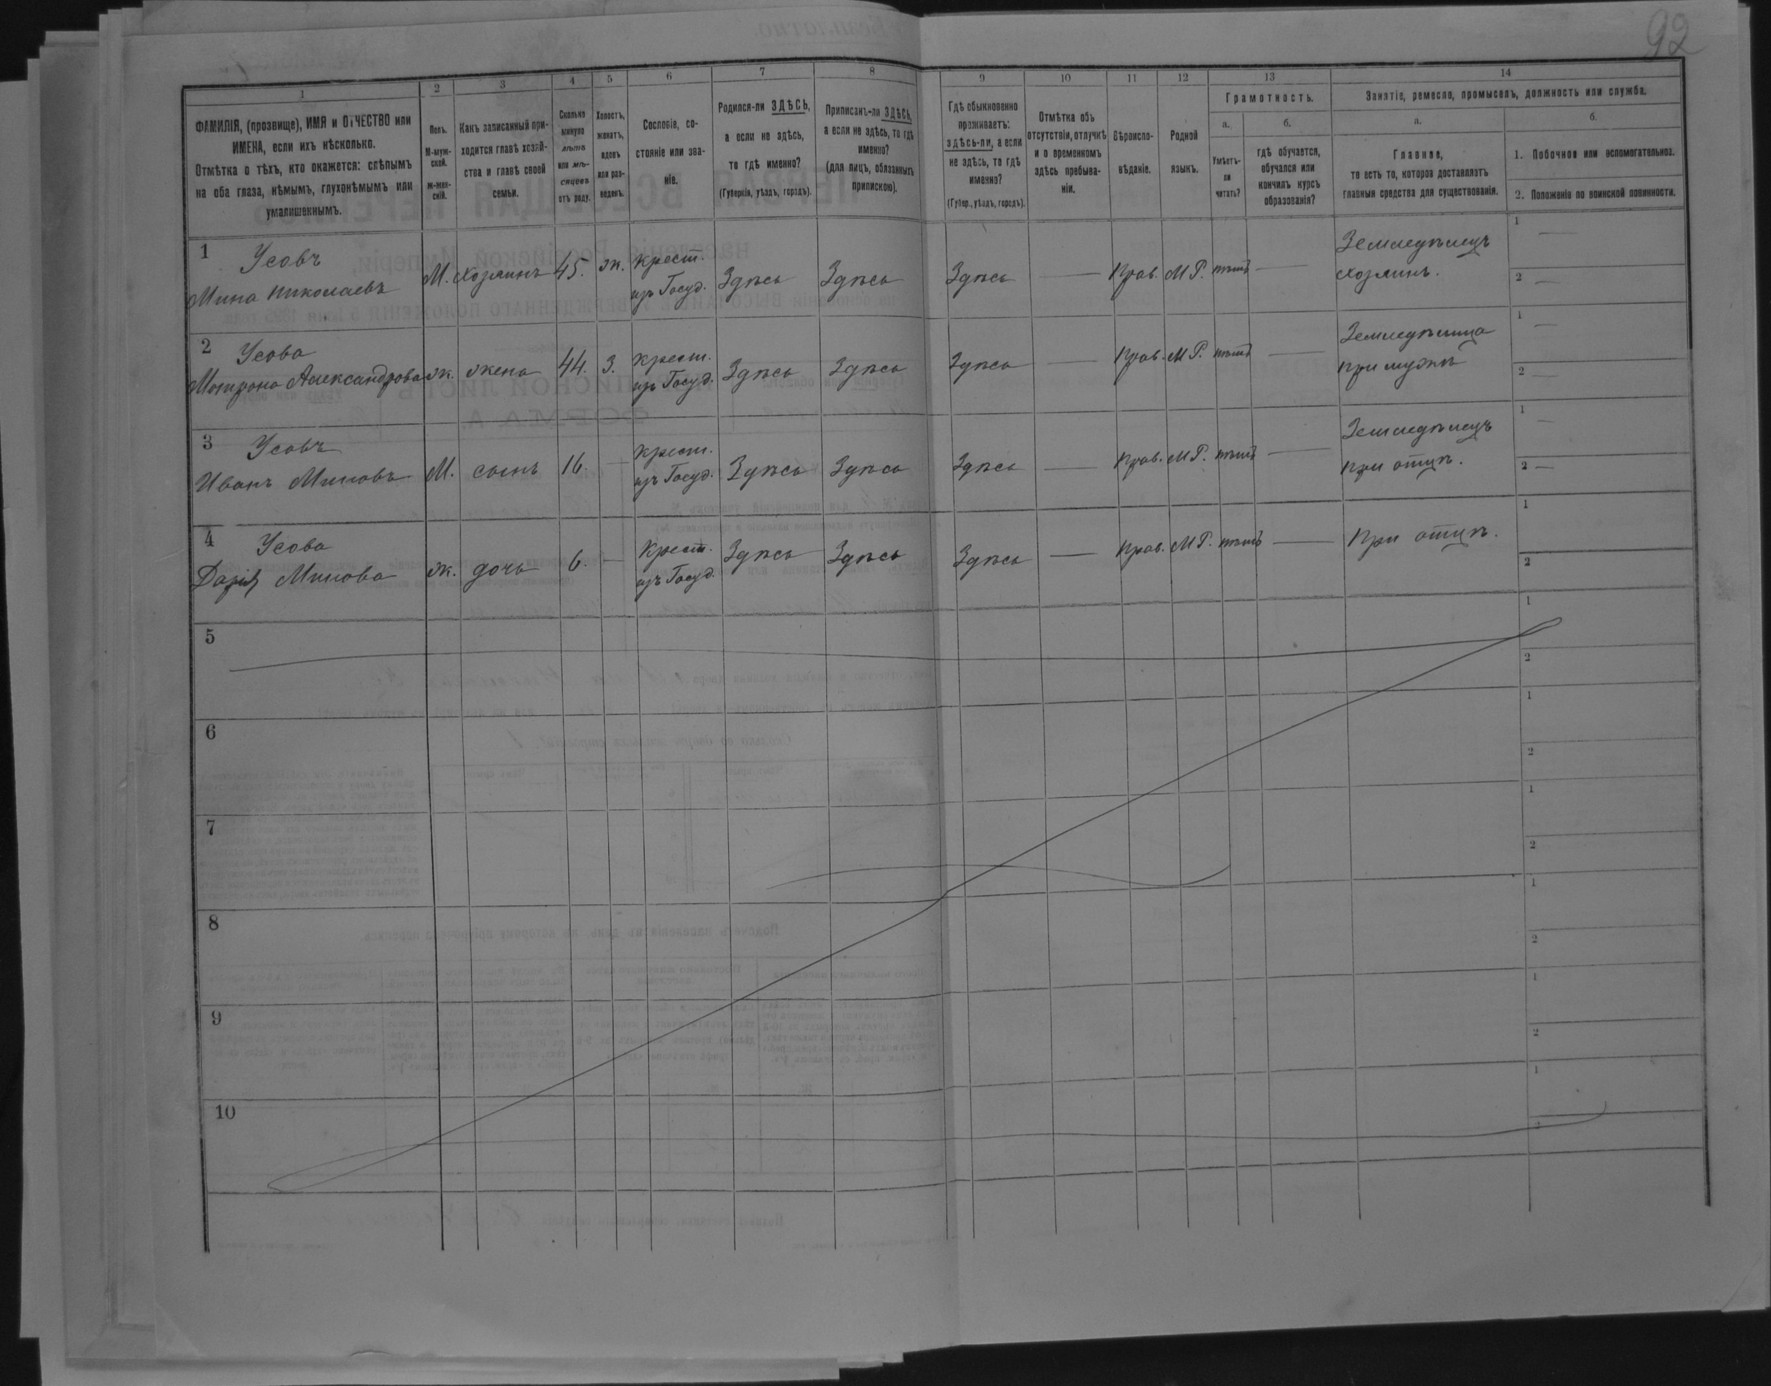 92
1 2 3 4 5 6 7 8 9 10 11 12 13 14
ФАМИЛІЯ, (прозвище), ИМЯ и ОТЧЕСТВО или
ИМЕНА, если ихъ нѣсколько.
Отмѣтка о тѣхъ, кто окажется: слѣпымъ
на оба глаза, нѣмымъ, глухонѣмымъ или
умалишеннымъ.
Полъ.
М-муж-
ской.
Ж-жен-
скій.
Какъ записанный при-
ходится главѣ хозяй-
ства и главѣ своей
семьи.
Сколько
минуло
лѣтъ
или мѣ-
сяцевъ
отъ роду.
Холостъ,
женатъ,
вдовъ
или раз-
веденъ.
Сословіе, со-
стояніе или зва-
ніе.
Родился-ли ЗДѢСЬ,
а если не здѣсь,
то гдѣ именно?
(Губернія, уѣздъ, городъ).
Приписанъ-ли ЗДѢСЬ,
а если не здѣсь, то гдѣ
именно?
(для лицъ, обязанныхъ
припискою).
Гдѣ обыкновенно
проживаетъ:
здѣсь-ли, а если
не здѣсь, то гдѣ
именно?
(Губер., уѣздъ, городъ).
Отмѣтка объ
отсутствіи, отлучкѣ
и о временномъ
здѣсь пребыва-
ніи.
Вѣроиспо-
вѣданіе.
Родной
языкъ.
Грамотность.
а.
Умѣетъ-
ли
читать?
б.
гдѣ обучается,
обучался или
кончилъ курсъ
образованія?
Занятіе, ремесло, промыселъ, должность или служба.
а.
Главное,
то есть то, которое доставляетъ
главныя средства для существованія.
б.
1. Побочное или вспомогательное.
2. Положеніе по воинской повинности.
1 Усовъ крест. Земледѣлецъ 1 —
Мина Николаевъ М. хозяинъ 45. ж. изъ Госуд. Здѣсь Здѣсь Здѣсь — Прав. М Р. нѣтъ — хозяинъ. 2 —
2 Усова крест. Земледѣлица 1 —
Матрона Александрова ж. жена 44. З. изъ Госуд. Здѣсь Здѣсь Здѣсь — Прав. М Р. нѣтъ — при мужѣ 2 —
3 Усовъ крест. Земледѣлецъ 1 —
Иванъ Миновъ М. сынъ 16. — изъ Госуд. Здѣсь Здѣсь Здѣсь — Прав. М Р. нѣтъ — при отцѣ. 2 —
4 Усова Крест. 1
Дарія Минова ж. дочь 6. — изъ Госуд. Здѣсь Здѣсь Здѣсь — Прав. М Р. нѣтъ — При отцѣ. 2
5 1
2
6 1
2
7 1
2
8 1
2
9 1
2
10 1